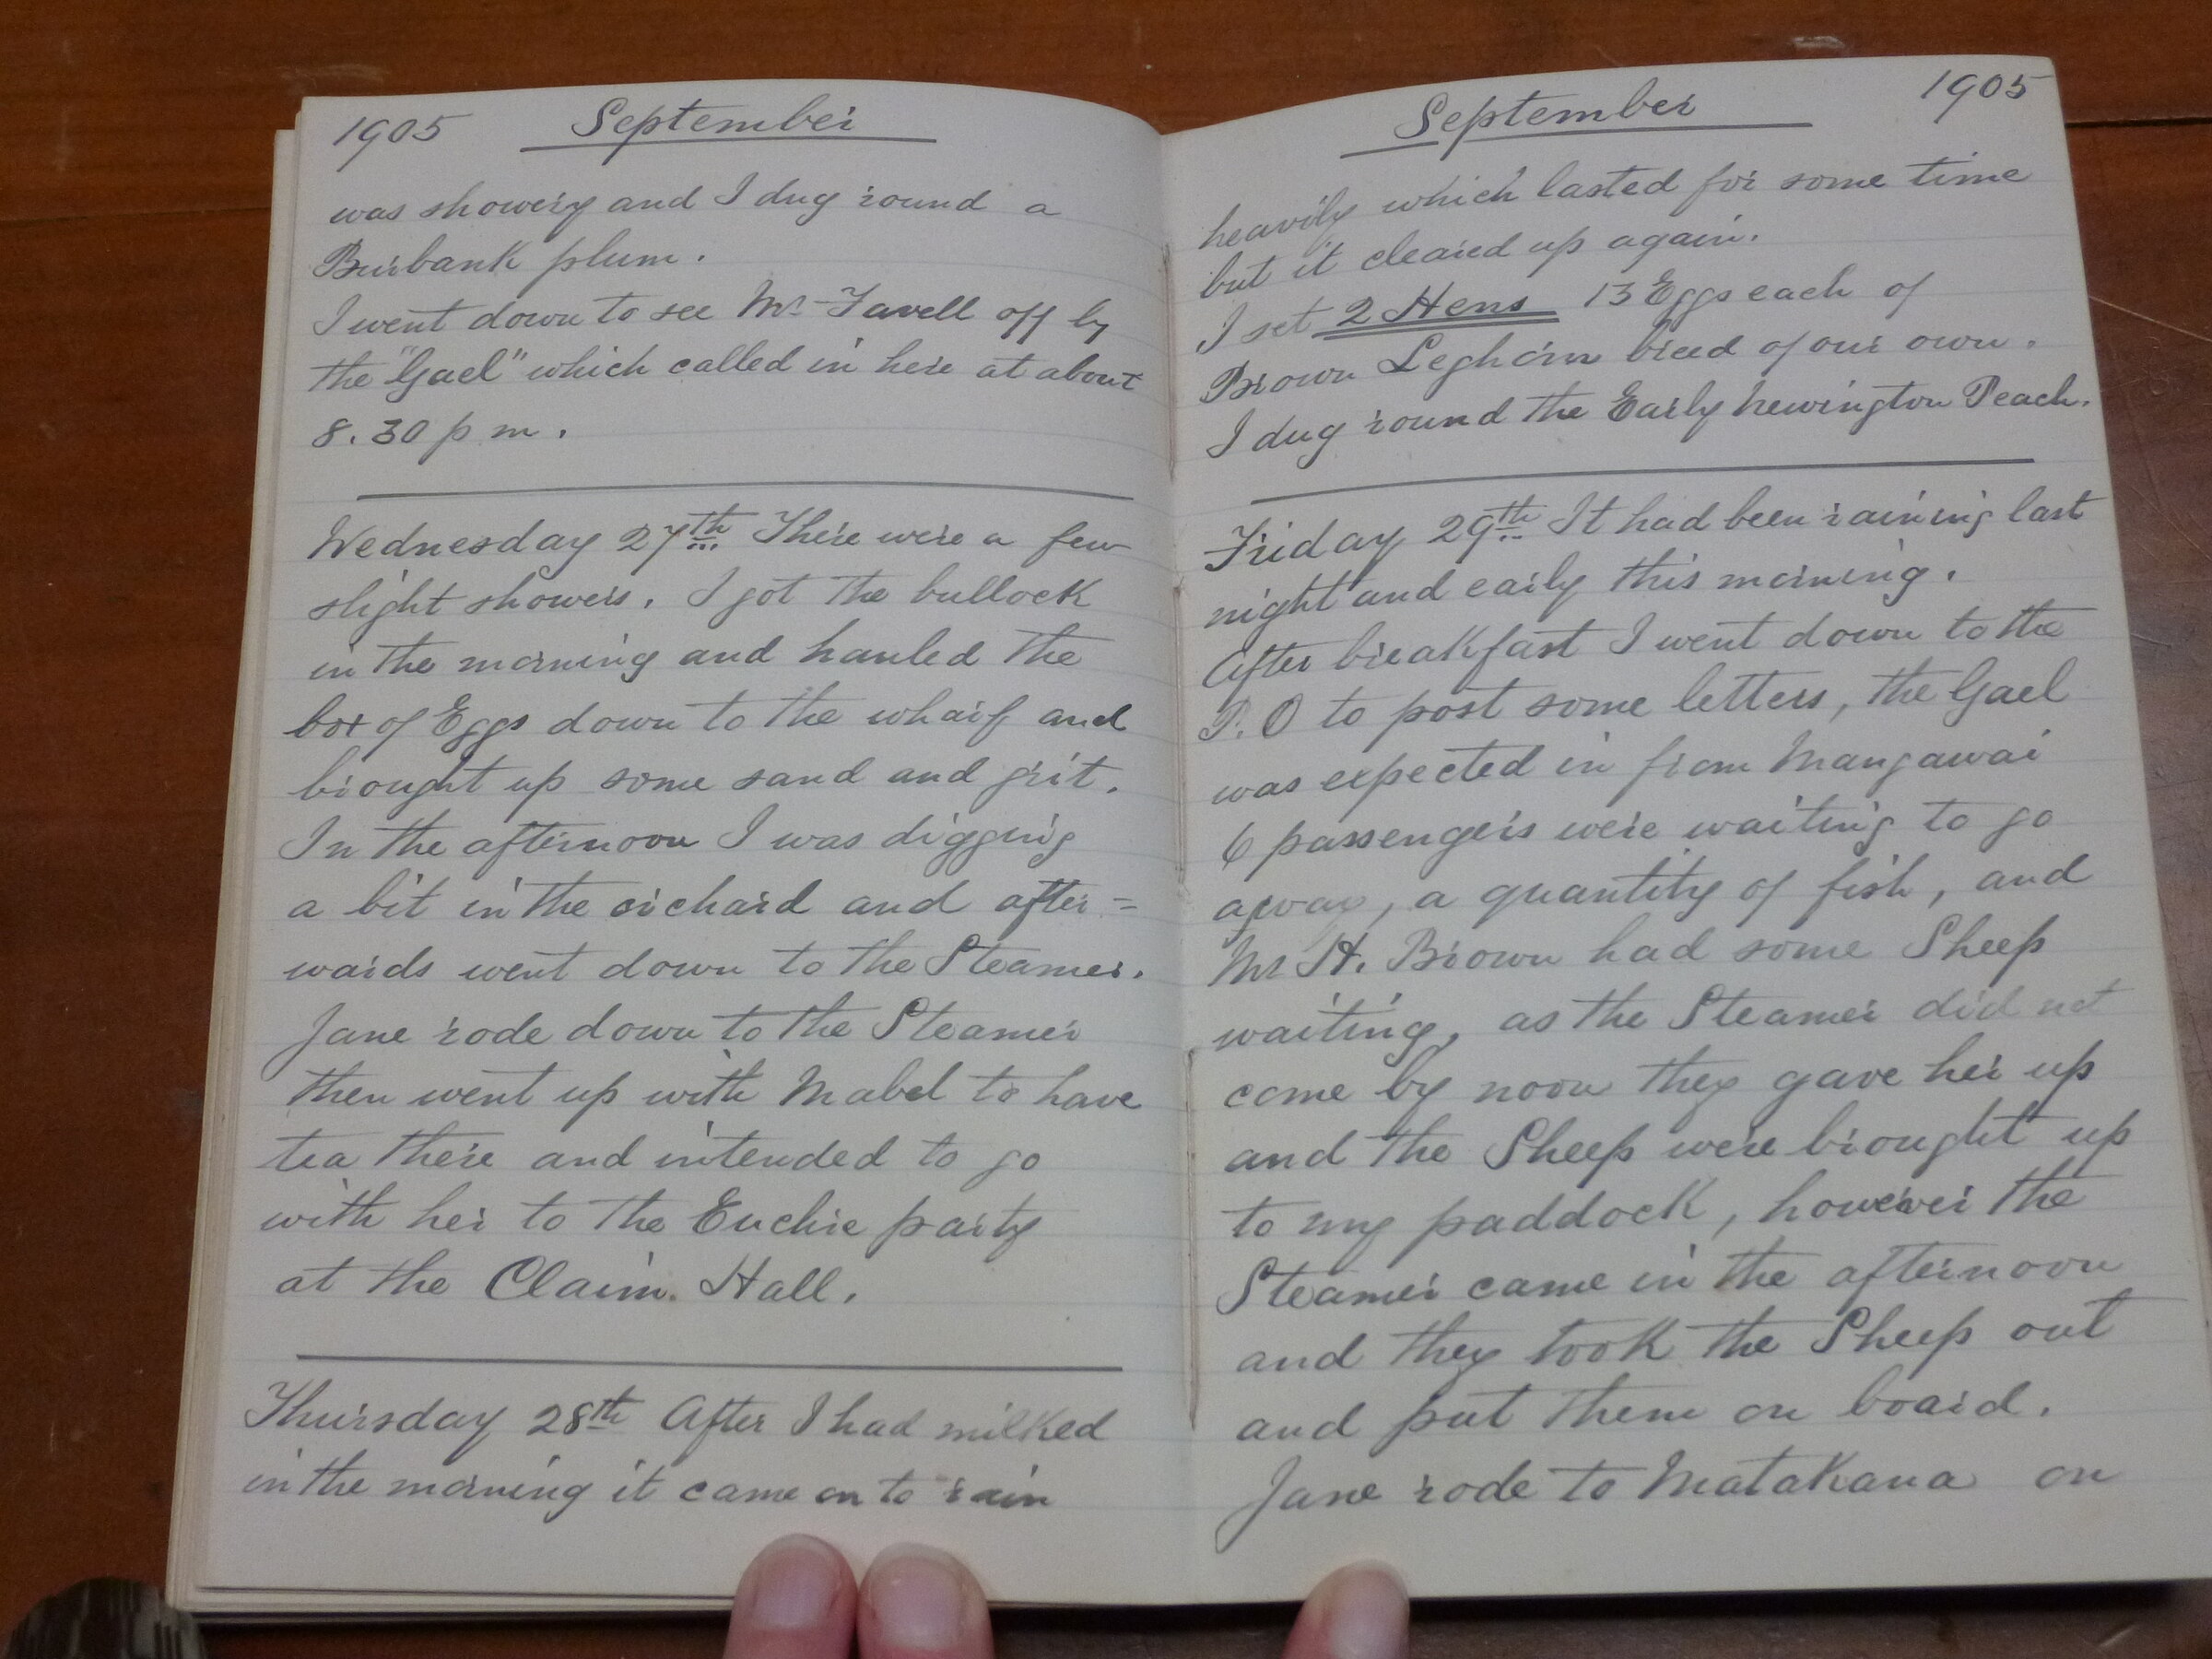 1905 September
was showery and I dug round a
Burbank plum.
I went down to see Mr Favell off by
the "Gael" which called in here at about
8.30 p m.
Wednesday 27th There were a few
slight showers. I got the bullock
in the morning and hauled the
box of Eggs down to the wharf and
brought up some sand and grit.
In the afternoon I was digging
a bit in the orchard and after=
wards went down to the Steamer.
Jane rode down to the Steamer
then went up with Mabel to have
tea there and intended to go
with her to the Euchre party
at the Claim. Hall.
Thursday 28th After I had milked
in the morning it came on to rain
September 1905
heavily which lasted for some time
but it cleared up again.
I set 2 Hens 13 Eggs each of
Brown Leghorn breed of our own.
I dug round the Early Newington Peach.
Friday 29th It had been raining last
night and early this morning.
After breakfast I went down to the
P. O to post some letters, the Gael
was expected in from Mangawai
6 passengers were waiting to go
away, a quantity of fish, and
Mr H. Brown had some Sheep
waiting, as the Steamer did not
come by noon they gave her up
and the Sheep were brought up
to my paddock, however the
Steamer came in the afternoon
and they took the Sheep out
and put them on board.
Jane rode to Matakana on